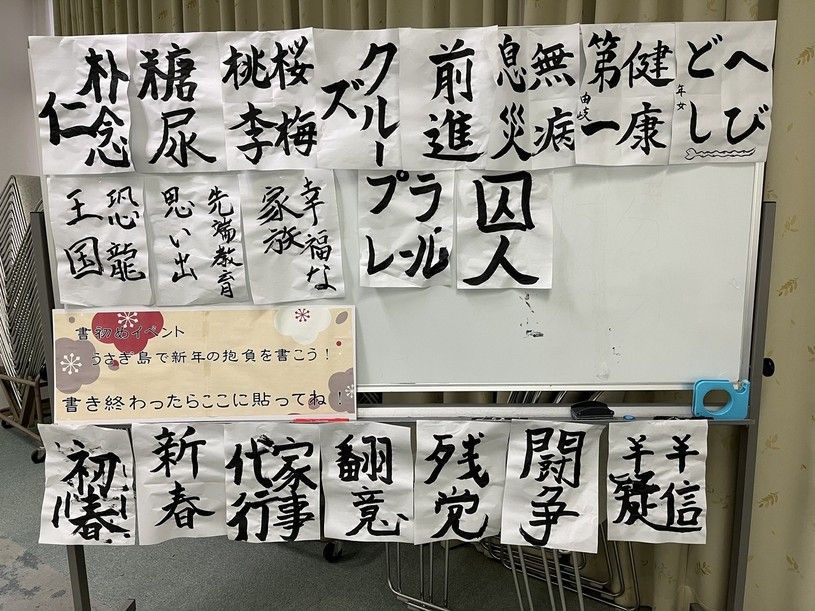 朴念
仁
糖尿
桜梅
桃李
クルー
ズ
前進
無病
息災
健康
第一
由岐
へび
どし
年女
恐龍
王国
先端教育
思い出
幸福な
家族
プラ
レール
囚人
書初めイベント
うさぎ島で新年の抱負を書こう！
書き終わったらここに貼ってね！
初春
新春
家事
代行
翻意
残党
闘争
半信
半疑